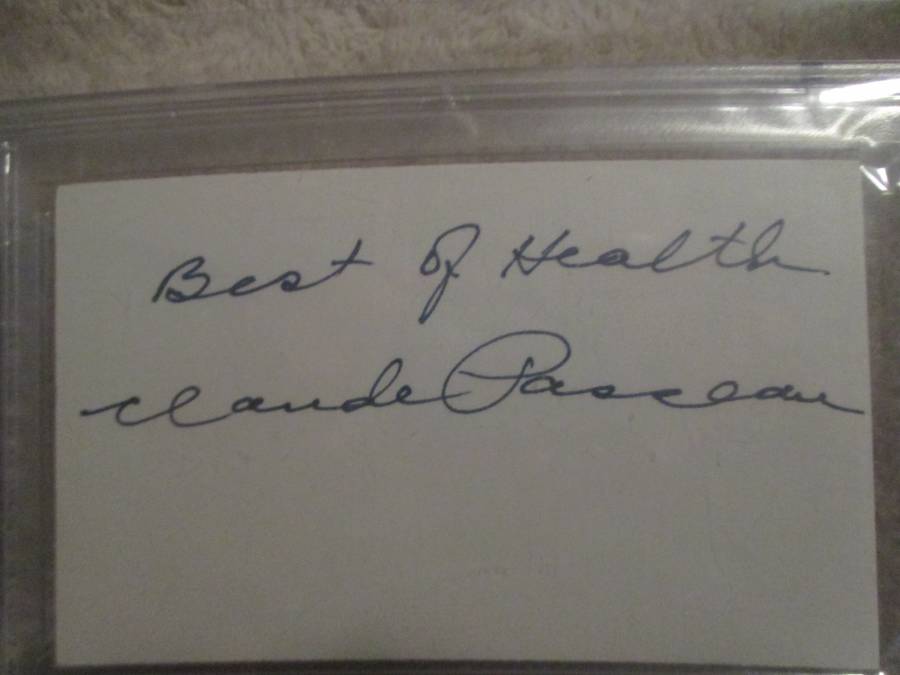 Best of Health
Claude Passeau